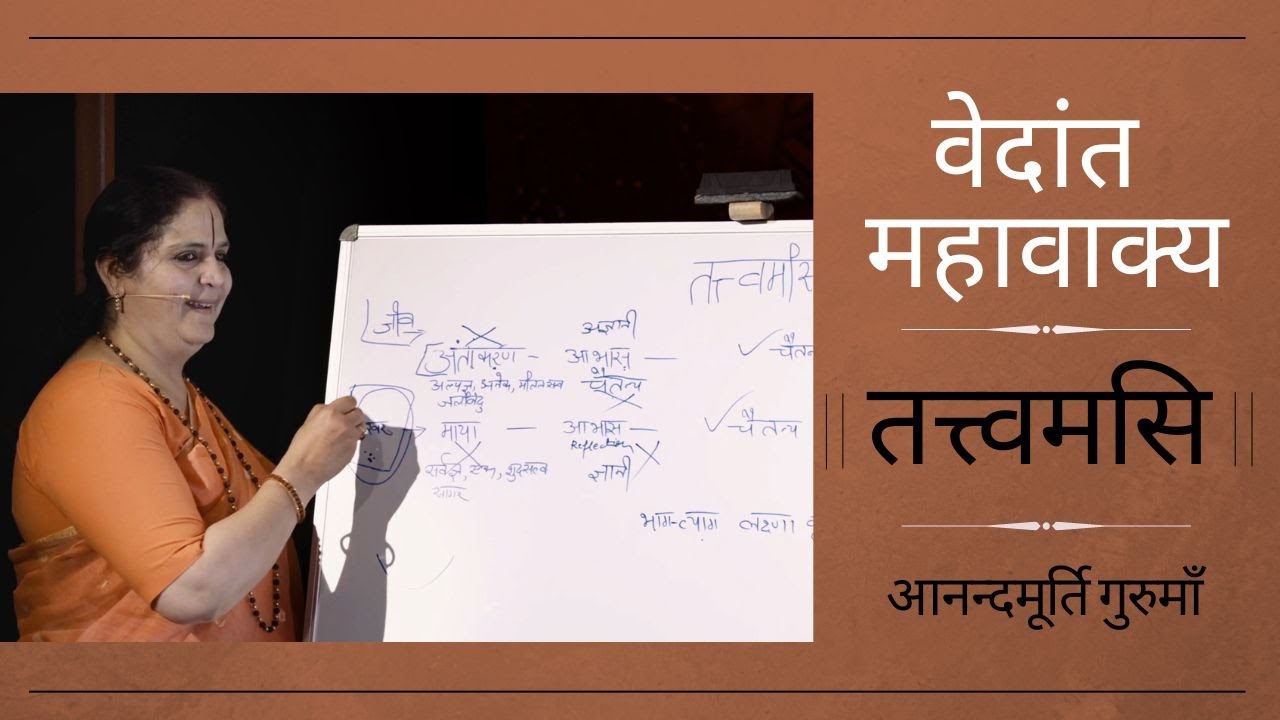 तत्त्वमसि
जीव
अज्ञानी
अंतःकरण - आभास — चैतन्य
अल्पज्ञ, अनेक,
चैतन्य
माया — आभास — चैतन्य
Reflection
सर्वज्ञ, एक, शुद्धसत्त्व
ज्ञानी
सागर
भाग-त्याग लक्षणा
वेदांत
महावाक्य
|| तत्त्वमसि ||
आनन्दमूर्ति गुरुमाँ